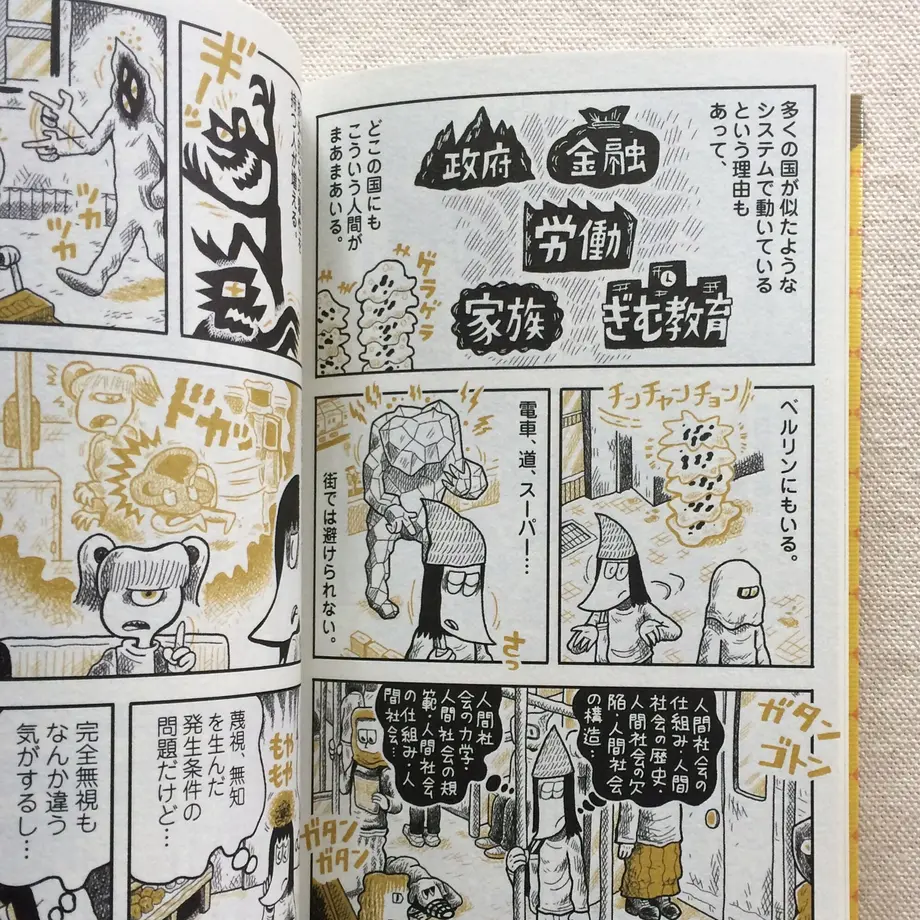 多くの国が似たような
システムで動いている
という理由も
あって、
金融
政府
労働
ぎむ教育
家族
どこの国にも
こういう人間が
まあまあいる。
ゲラゲラ
チンチャンチョン
ベルリンにもいる。
電車、道、スーパー…。
街では避けられない。
さっ
ガタン
ゴトン
人間社会の
仕組み・人間
社会の歴史・
人間社会の欠
陥・人間社会
の構造・
人間社
会の力学・
人間社会の規
範・人間社会
の仕組み・人
間社会…
ガタン
ガタン
ギーッ
ツカ
ツカ
ドカッ
蔑視、無知
を生んだ
発生条件の
問題だけど…
もや
もや
完全無視も
なんか違う
気がするし…